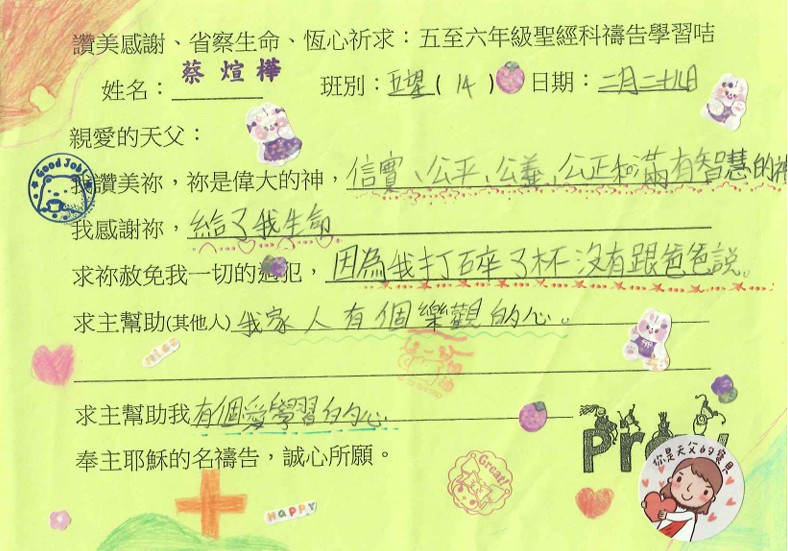 讚美感謝、省察生命、恆心祈求：五至六年級聖經科禱告學習咭
姓名：蔡煊樺 班別：五望(14) 日期：二月二十九日
親愛的天父：
Good Job!
我讚美祢，祢是偉大的神，信實、公平、公義、公正和滿有智慧的神
我感謝祢，給了我生命
求祢赦免我一切的過犯，因為我打碎了杯沒有跟爸爸說。
求主幫助(其他人)我家人有個樂觀的心。
nice
求主幫助我有個愛學習的心
Pray
奉主耶穌的名禱告，誠心所願。
你是天父的寶貝
Great!
HAPPY